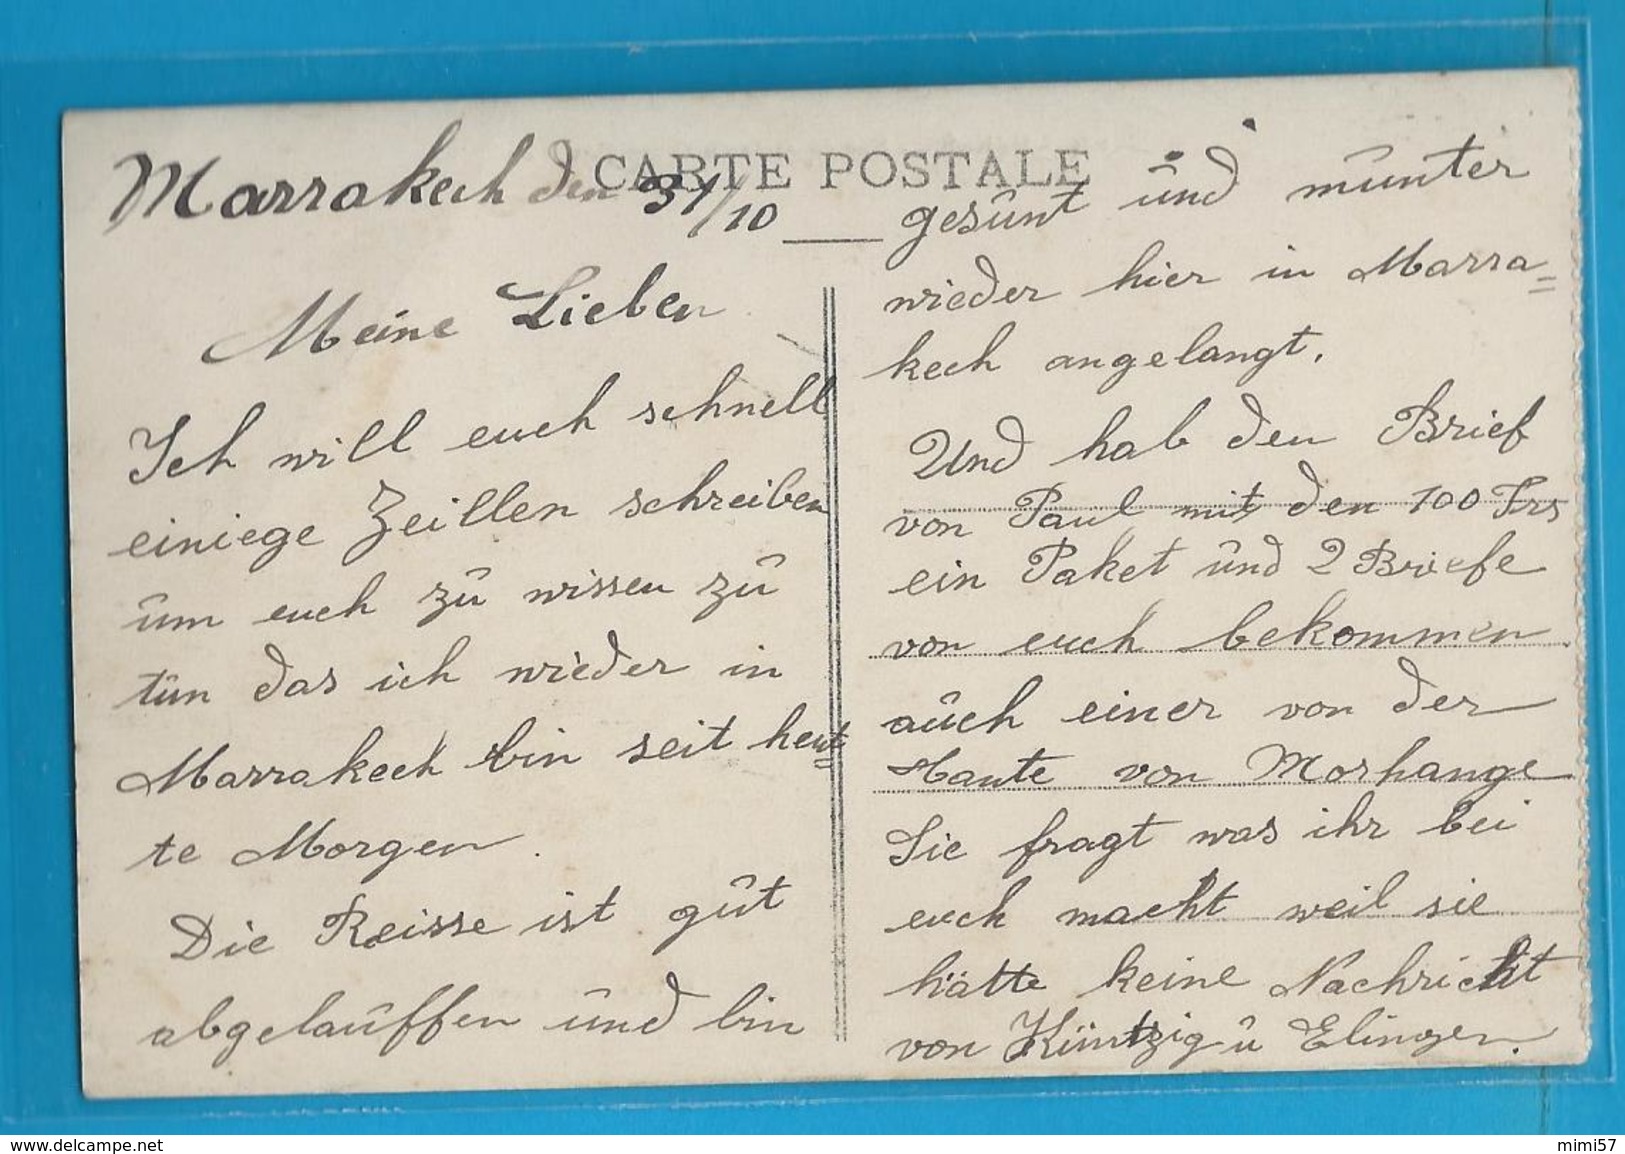 CARTE POSTALE
Marrakech den 31/10
Meine Lieben
Ich will euch schnell
einiege Zeillen schreiben
um euch zu wissen zu
tun das ich wieder in
Marrakech bin seit heut=
te Morgen.
Die Reisse ist gut
abgelauffen und bin
gesunt und munter
wieder hier in Marra=
kech angelangt.
Und hab den Brief
von Paul mit den 100 Frs
ein Paket und 2 Briefe
von euch bekommen
auch einer von der
Tante von Morhange
Sie fragt was ihr bei
euch macht weil sie
hätte keine Nachricht
von Küntzig u Elingen.
www.delcampe.net
mimi57